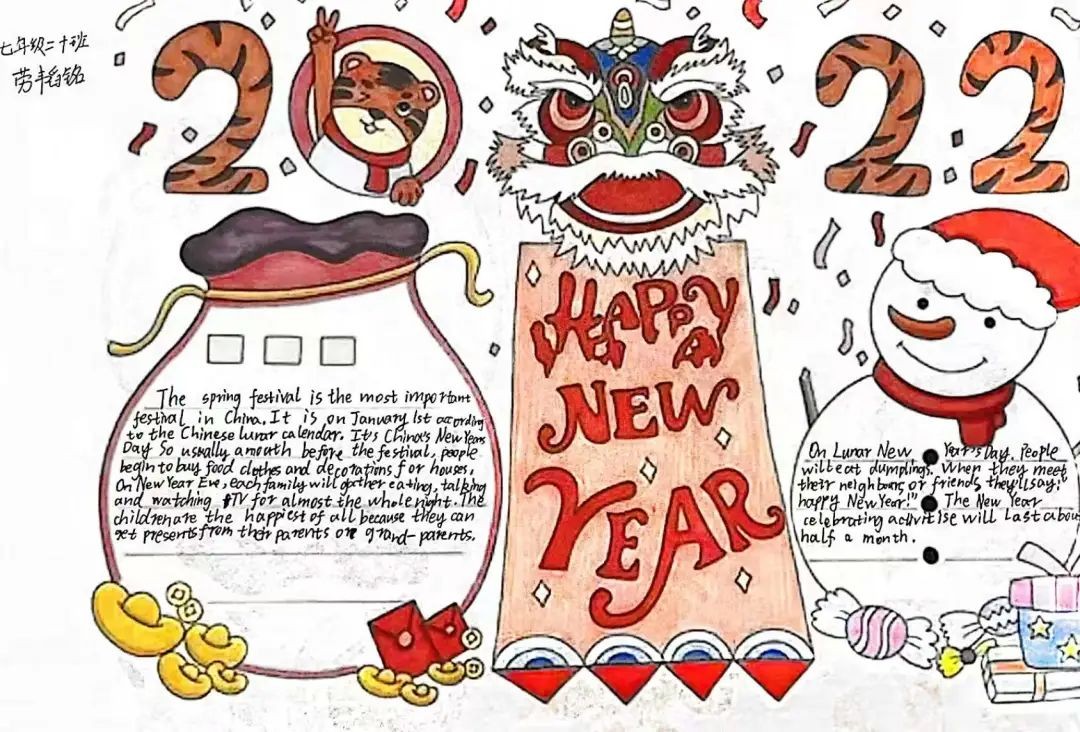 七年级二十班
劳韬铭
2022
HAPPY
A
NEW
YEAR
The spring festival is the most important
festival in China. It is on January 1st according
to the Chinese lunar calendar. It's China's New Years
Day So usually a mouth before the festival, people
begin to buy food clothes and decorations for houses.
On New Year Eve, each family will gather eating, talking
and watching TV for almost the whole night. The
children are the happiest of all because they can
get presents from their parents or grand-parents.
On Lunar New Year's Day. People
will eat dumplings. When they meet
their neighburs or friends, they'll say:"
happy New Year!" The New Year
celebrating activitise will last abou
half a month.